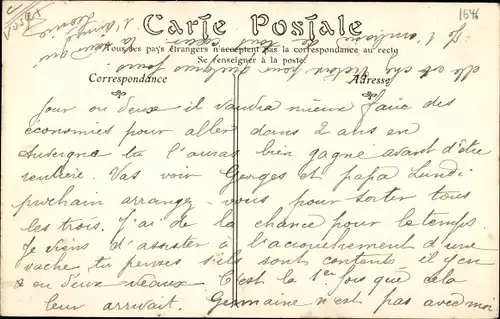 1646
Carte Postale
Tous les pays étrangers n'acceptent pas la correspondance au recto
Se renseigner à la poste.
Correspondance
Adresse
jour ou deux il vaudra mieux faire des
économies pour aller dans 2 ans en
Auvergne tu l'auras bien gagné avant d'être
rentière. Vas voir Georges et papa Lundi
prochain arrangez-vous pour sorter tous
les trois. J'ai de la chance pour le temps.
Je viens d'assister à l'accouchement d'une
vache tu penses s'ils sont contents il y en
a eu deux veaux. C'est la 1ère fois que cela
leur arrivait. Germaine n'est pas avec moi
elle est chez Victoire pour quelques jours
Je t'embrasse de tout cœur
la sœur qui
t'aime